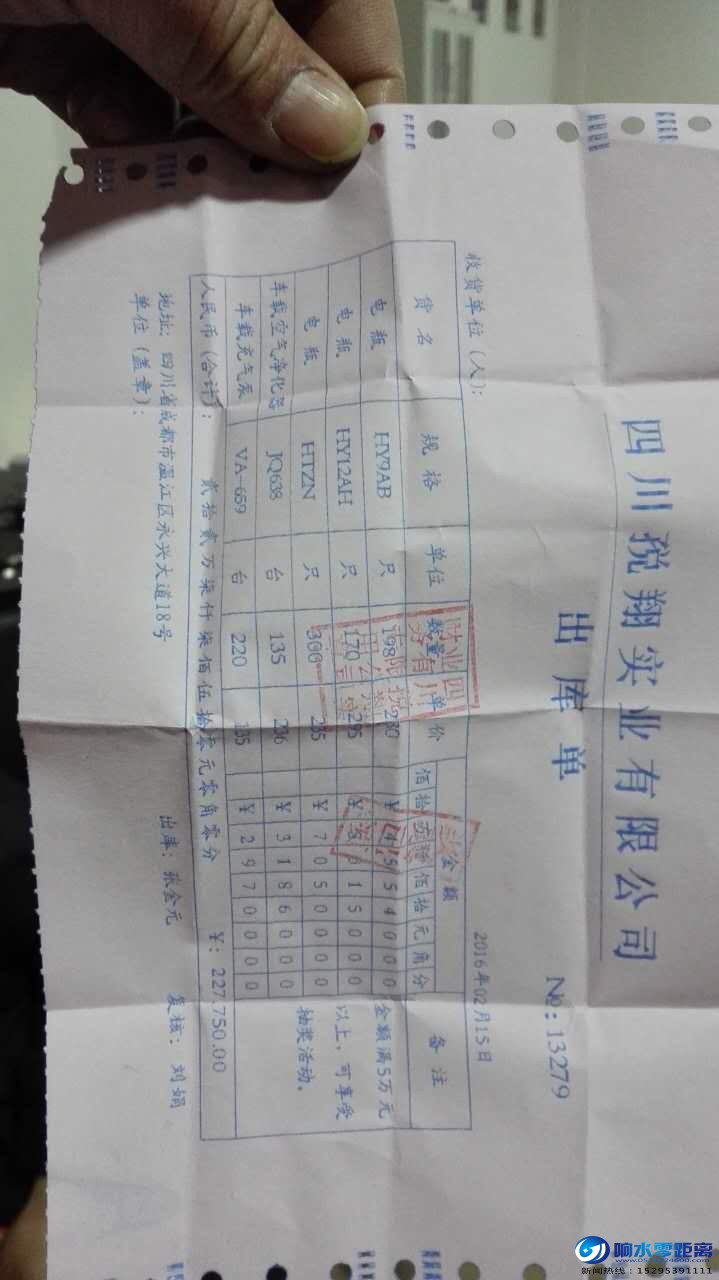 四川税翔实业有限公司
出库单
No: 13279
收货单位（人）：
2016年02月15日
货名 规格 单位 数量 单价 金额 备注
佰 拾 万 仟 佰 拾 元 角 分
电瓶 HY9AB 只 198 230 ¥ 4 5 5 4 0 0 0
电瓶 HY12AH 只 170 295 ¥ 5 0 1 5 0 0 0
电瓶 HTZN 只 300 235 ¥ 7 0 5 0 0 0 0
车载空气净化器 JQ638 台 135 236 ¥ 3 1 8 6 0 0 0
车载充气泵 VA-659 台 220 135 ¥ 2 9 7 0 0 0 0
金额满5万元
以上，可享受
抽奖活动。
人民币（合计）： 贰拾贰万柒仟柒佰伍拾零元零角零分 ¥: 227,750.00
地址：四川省成都市温江区永兴大道18号 出库：张会元 复核：刘娟
单位（盖章）：
响水零距离
新闻热线：15295391111